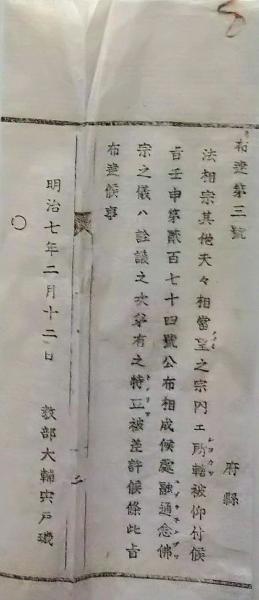 布達第三號
府縣
法相宗其他夫々相當望之宗內エ所轄被仰付候
旨壬申第貳百七十四號公布相成候處融通念佛
宗之儀ハ詮議之次第有之特立被差許候條此旨
布達候事
明治七年二月十二日 敎部大輔宍戶璣
○
二